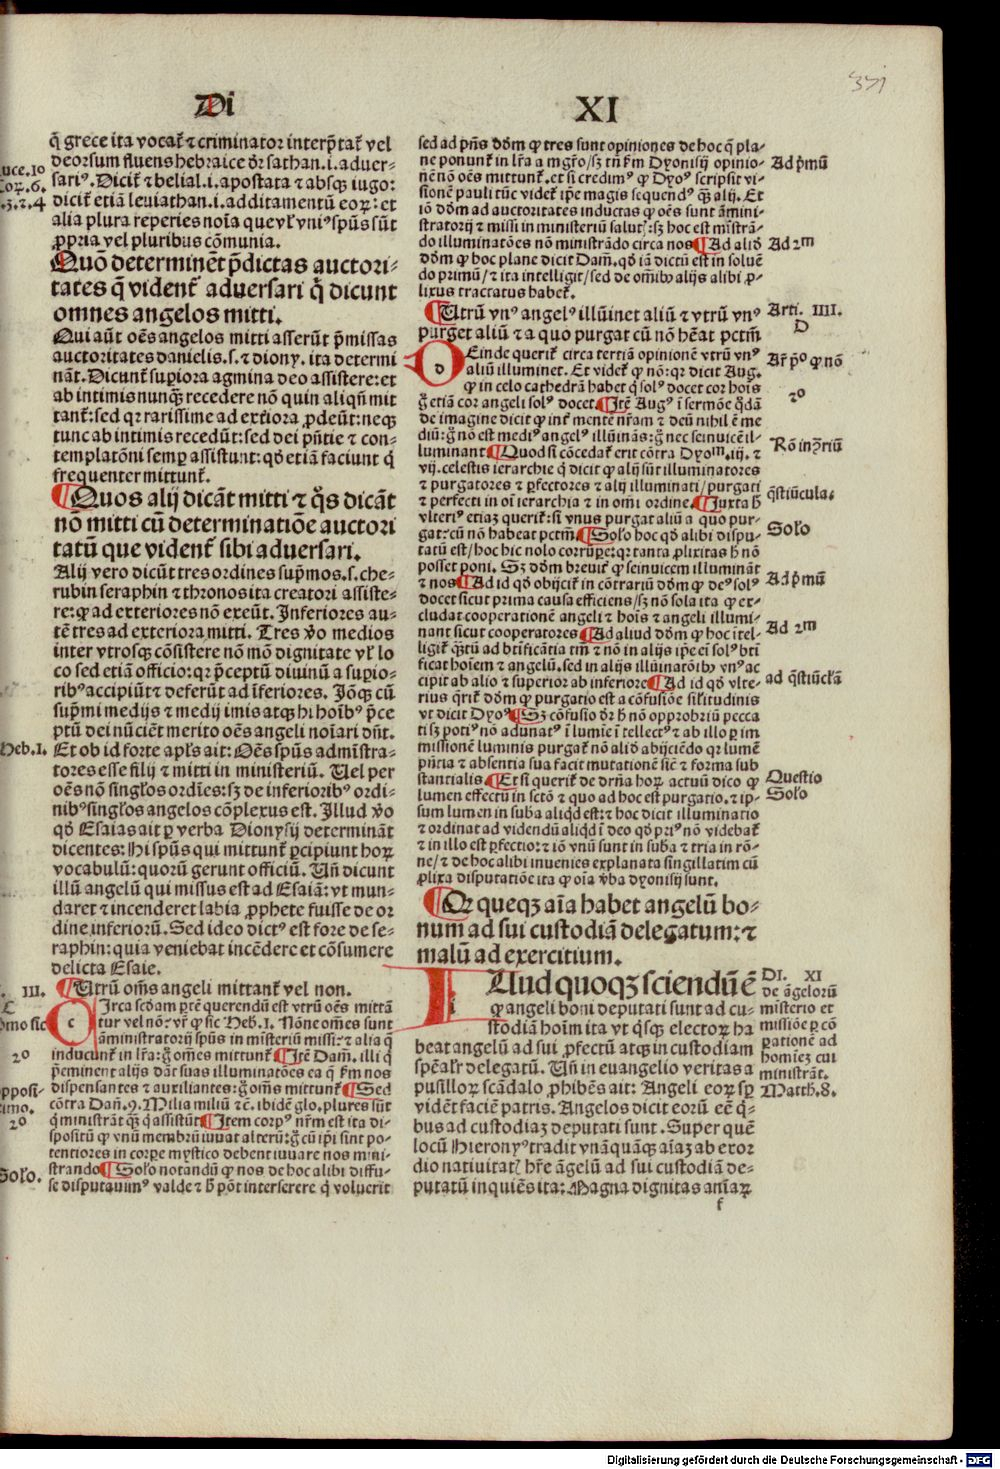 Di
XI
331
q̄ grece ita vocat᷑ ⁊ criminator interp̄tat᷑ vel
deorsum fluens hebraice dr̄ sathan .i. aduer-
sariꝰ. Dicit᷑ ⁊ belial .i. apostata ⁊ absqꝫ iugo:
dicit᷑ etiā leuiathan .i. additamentū eoꝝ: et
alia plura reperies noīa que vl̓ vniꝰ spūs sūt
ꝓpria vel pluribus cōmunia.
uce.10
Coꝝ.6.
.3.⁊.4
Quō determinēt p̄dictas auctori-
tates q̄ vident᷑ aduersari q̄ dicunt
omnes angelos mitti.
Qui aūt oēs angelos mitti asserūt p̄missas
auctoritates danielis .s. ⁊ diony. ita determi
nāt. Dicunt supiora agmina deo assistere: et
ab intimis nunqꝫ recedere nō quin aliqn̄ mit
tant᷑: sed qꝛ rarissime ad exteriora ꝓdeūt: neqꝫ
tunc ab intimis recedūt: sed dei pn̄tie ⁊ con-
templatōni semꝑ assistunt: qd̓ etiā faciunt q̄
frequenter mittunt᷑.
¶ Quos alij dicāt mitti ⁊ q̊s dicāt
nō mitti cū determinatiōe auctori
tatū que vident᷑ sibi aduersari.
Alij vero dicūt tres ordines sup̄mos .s. che-
rubin seraphin ⁊ thronos ita creatori assiste-
re: ꝙ ad exteriores nō exeūt. Inferiores au-
tē tres ad exteriora mitti. Tres v̊o medios
inter vtrosqꝫ cōsistere nō mō dignitate vl̓ lo
co sed etiā officio: qꝛ p̄ceptū diuinū a supio-
ribꝰ accipiūt ⁊ deferūt ad īferiores. Jdꝫqꝫ cū
sup̄mi medijs ⁊ medij imis atqꝫ hi hoībꝰ p̄ce
ptū dei nūciēt merito oēs angeli noīari dn̄t.
Et ob id forte apl̓s ait: Oēs spūs admīstra-
tores esse filij ⁊ mitti in ministeriū. Uel per
oēs nō singl̓os ordīes: sꝫ de inferioribꝰ ordi-
nibꝰ singl̓os angelos cōplexus est. Illud v̊o
qd̓ Esaias ait ꝑ verba Dionysij determināt
dicentes: Hi spūs qui mittunt᷑ ꝑcipiunt hoꝝ
vocabulū: quorū gerunt officiū. Un̄ dicunt
illū angelū qui missus est ad Esaiā: vt mun-
daret ⁊ incenderet labia ꝓphete fuisse de or
dine inferiorū. Sed ideo dictꝰ est fore de se-
raphin: quia veniebat incēdere et cōsumere
delicta Esaie.
Heb.1.
. III.
¶ Utrū om̄s angeli mittant᷑ vel non.
Circa scd̓am ꝑtē querendū est vtrū oēs mittā
tur vel nō: vr̄ ꝙ sic Heb.1. Nōne om̄es sunt
āministratorij spūs in misteriū missi: ⁊ alia q̄
inducunt᷑ in lr̄a: g̊ om̄es mittunt᷑ ¶ Itē Dam̄. illi q̄
p̄eminent alijs dāt suas illuminatōes ea q̄ k̄m nos
dispensantes ⁊ auxiliantes: g̊ om̄s mittunt᷑ ¶ Sed
cōtra Dan̄.9. Milia miliū ⁊c̄. ibidē glo. plures sūt
q̄ ministrāt qꝫ q̄ assistūt ¶ Item corpꝰ nr̄m est ita di-
spositū ꝙ vnū membrū iuuat alterū: g̊ cū ip̄i sint po-
tentiores in corpe mystico debent iuuare nos mini-
strando ¶ Sol̓o notandū ꝙ nos de hoc alibi diffu-
se disputauimꝰ valde ⁊ h̄ pōt interserere q̄ voluerit
2o
opposi-
timo.
2o
Sol̓o.
sed ad pn̄s dd̓m ꝙ tres sunt opiniones de hoc q̄ pla-
ne ponunt᷑ in lr̄a a mgr̄o/ sꝫ tn̄ k̄m Dyonisij opinio-
nē nō oēs mittunt᷑. et si credimꝰ ꝙ Dyoꝰ scripsit vi-
sionē pauli tūc videt᷑ ip̄e magis sequendꝰ qꝫ alij. Et
iō dd̓m ad auctoritates inductas ꝙ oēs sunt āmini-
stratorij ⁊ missi in ministeriū salut᷑: sꝫ hoc est mīstrā-
do illuminatōes nō ministrādo circa nos ¶ Ad aliō
dd̓m ꝙ hoc plane dicit Dam̄. qd̓ iā dictū est in soluē
do primū/ ⁊ ita intelligit/ sed de om̄ibꝫ alijs alibi ꝓ-
lixus tractatus habet᷑.
Ad p̄mū
Ad 2m
¶ Utrū vnꝰ angelꝰ illūinet aliū ⁊ vtrū vnꝰ
purget aliū ⁊ a quo purgat cū nō hēat pctm̄
Arti. IIII.
D
Deinde querit᷑ circa tertiā opinionē vtrū vnꝰ
aliū illuminet. Et videt᷑ ꝙ nō: qꝛ dicit Aug.
ꝙ in celo cathedrā habet q̄ solꝰ docet cor hoīs
g̊ etiā cor angeli solꝰ docet ¶ Itē Augꝰ ī sermōe q̊dā
de imagine dicit ꝙ int᷑ mente nr̄am ⁊ deū nihil ē me
diū: g̊ nō est mediꝰ angelꝰ illūinās: g̊ nec seinuicē il-
luminant ¶ Quod si cōcedat᷑ erit cōtra Dyom. iij. ⁊
vij. celestis ierarchie q̄ dicit ꝙ alij sūt illuminatores
⁊ purgatores ⁊ ꝑfectores ⁊ alij illuminati/ purgati
⁊ perfecti in oī ierarchia ⁊ in om̄i ordine ¶ Juxta h̄
vlteriꝰ etiaꝫ querit᷑: si vnus purgat aliū a quo pur-
gat: cū nō habeat pctm̄ ¶ Sol̓o hoc qd̓ alibi dispu-
tatū est/ hoc hic nolo corrūpe: qꝛ tanta ꝓlixitas h̄ nō
posset poni. Sꝫ dd̓m breuit᷑ ꝙ seinuicem illumināt
⁊ nos ¶ Ad id qd̓ obijcit᷑ in cōtrariū dd̓m ꝙ deꝰ solꝰ
docet sicut prima causa efficiens/ sꝫ nō sola ita ꝙ ex-
cludat cooperationē angeli ⁊ hoīs ⁊ angeli illumi-
nant sicut cooperatores ¶ Ad aliud dd̓m ꝙ hoc ītel-
ligit᷑ qꝫtū ad btīficātia tm̄ ⁊ nō in alijs ip̄e ei solꝰ btī
ficat hoīem ⁊ angelū. sed in alijs illūinatōibꝫ vnꝰ ac
cipit ab alio ⁊ superior ab inferiore ¶ Ad id qd̓ vlte-
rius q̄rit᷑ dd̓m ꝙ purgatio est a cōfusiōe sil̓itudinis
vt dicit Dyoꝰ ¶ Sꝫ cōfusio dr̄ h̄ nō opprobriū pecca
ti sꝫ potiꝰ nō adunatꝰ ī lumīe ītellectꝰ ⁊ ab illo ꝑ im
missionē luminis purgat᷑ nō aliō abijciēdo qꝛ lumē
pn̄tia ⁊ absentia sua facit mutationē siē ⁊ forma sub
stantialis. ¶ Et si querit᷑ de drn̄a hoꝝ actuū dico ꝙ
lumen effectū in sctō ⁊ quo ad hoc est purgatio. ⁊ ip-
sum lumen in suba aliqd̓ est: ⁊ hoc dicit illuminatio
⁊ ordinat ad videndū aliqd̓ ī deo qd̓ priꝰ nō videbat᷑
⁊ in illo est ꝑfectio: ⁊ iō vnū sunt in suba ⁊ tria in rō-
ne/ ⁊ de hoc alibi inuenies explanata singillatim cū
ꝓlixa disputatiōe ita ꝙ oīa v̓ba dyonisij sunt.
Ar̄ pº ꝙ nō
2o
Rō in ꝯriū
q̄stiūcula:
Sol̓o
Ad p̄mū
Ad 2m
ad q̄stiūcl̓ā
Questio
Sol̓o
¶ Qꝛ queqꝫ aīa habet angelū bo-
num ad sui custodiā delegatum: ⁊
malū ad exercitium.
Illud quoqꝫ sciendū ē
ꝙ angeli boni deputati sunt ad cu-
stodiā hoīm ita vt q̄sqꝫ electoꝝ ha
beat angelū ad sui ꝓfectū atqꝫ in custodiam
spēal̓r delegatū. Un̄ in euangelio veritas a
pusilloꝝ scādalo ꝓhibēs ait: Angeli eoꝝ sꝑ
vidēt faciē patris. Angelos dicit eorū eē q̄-
bus ad custodiaꝫ deputati sunt. Super quē
locū Hieronyꝰ tradit vnāquāqꝫ aīaꝫ ab exor
dio natiuitat᷑ hr̄e āgelū ad sui custodiā de-
putatū inquiēs ita: Magna dignitas aīaꝝ
DI. XI
de āgelorū
misterio et
missiōe ꝑ cō
ꝑationē ad
homīeꝫ cui
ministrāt.
Matth.8.
f